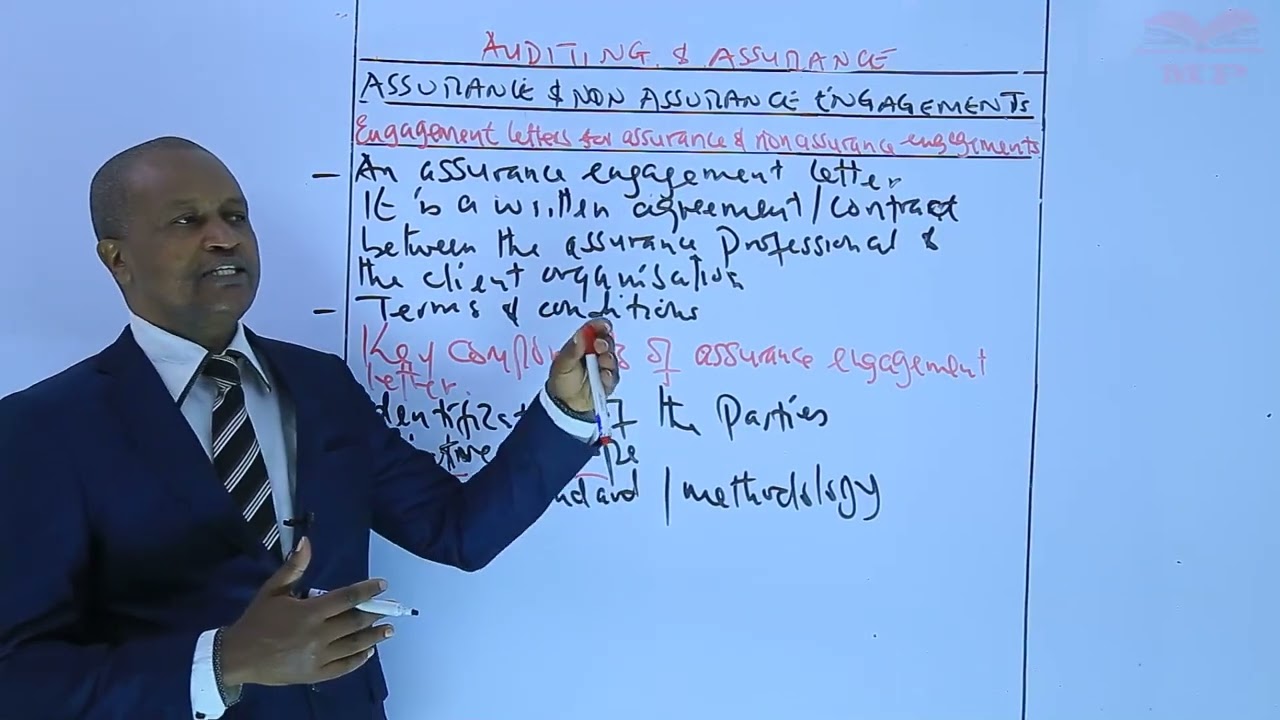 AUDITING & ASSURANCE
ASSURANCE & NON ASSURANCE ENGAGEMENTS
Engagement letters for assurance & non assurance engagements
- An assurance engagement letter
It is a written agreement/contract
between the assurance professional &
the client organisation
- Terms & conditions
Key of assurance engagement
letter
the Parties
/methodology